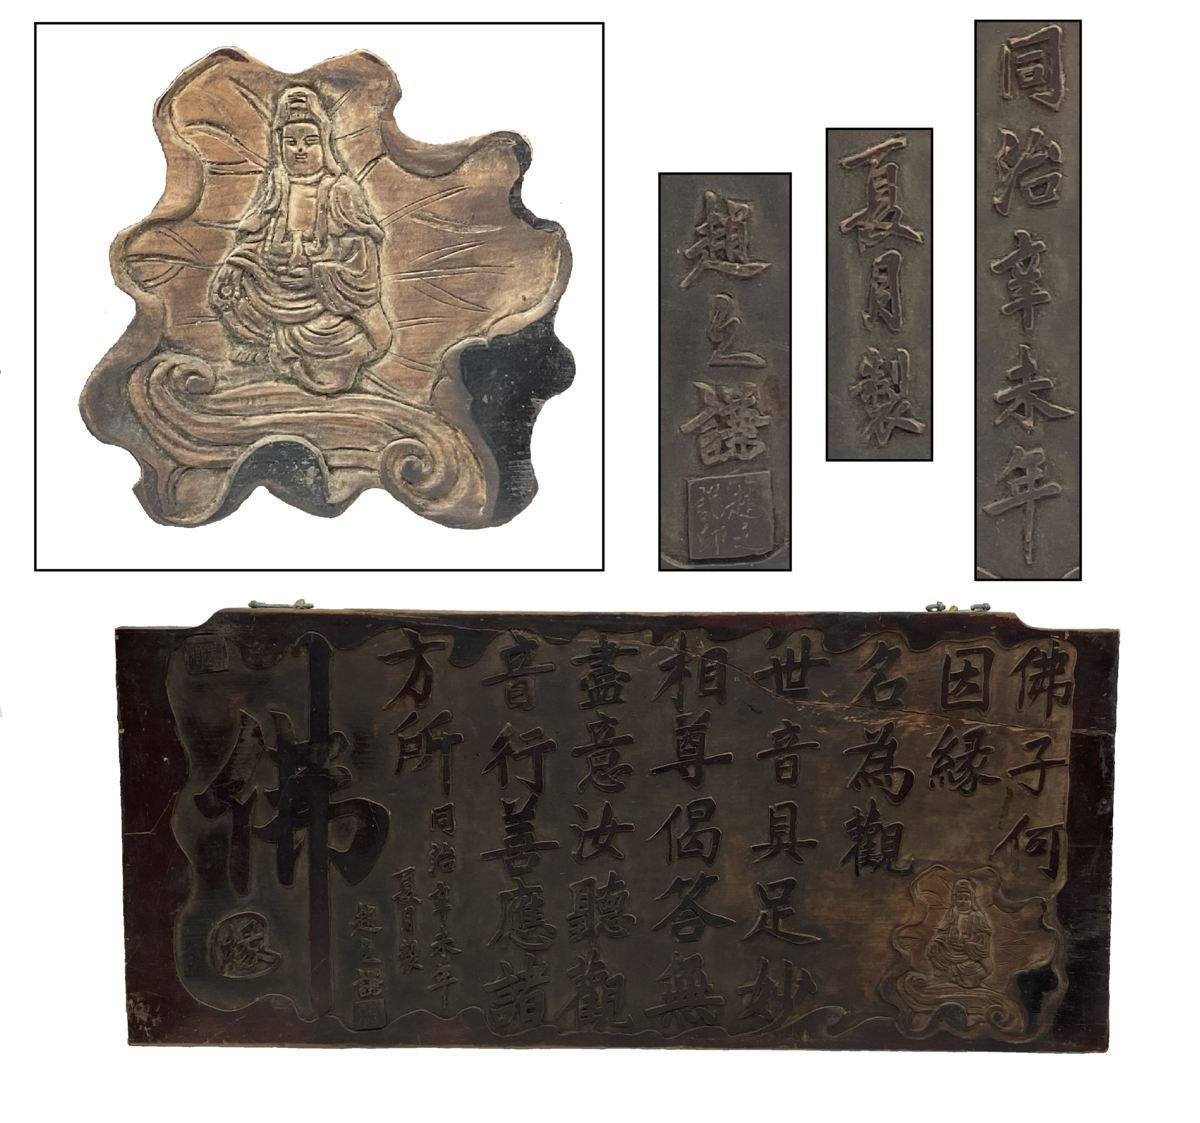 同治辛未年
夏月製
趙之謙
趙之謙印
佛子何
因緣
名為觀
世音具足妙
相尊偈答無
盡意汝聽觀
音行善應諸
方所
同治辛未年
夏月製
趙之謙
佛
緣